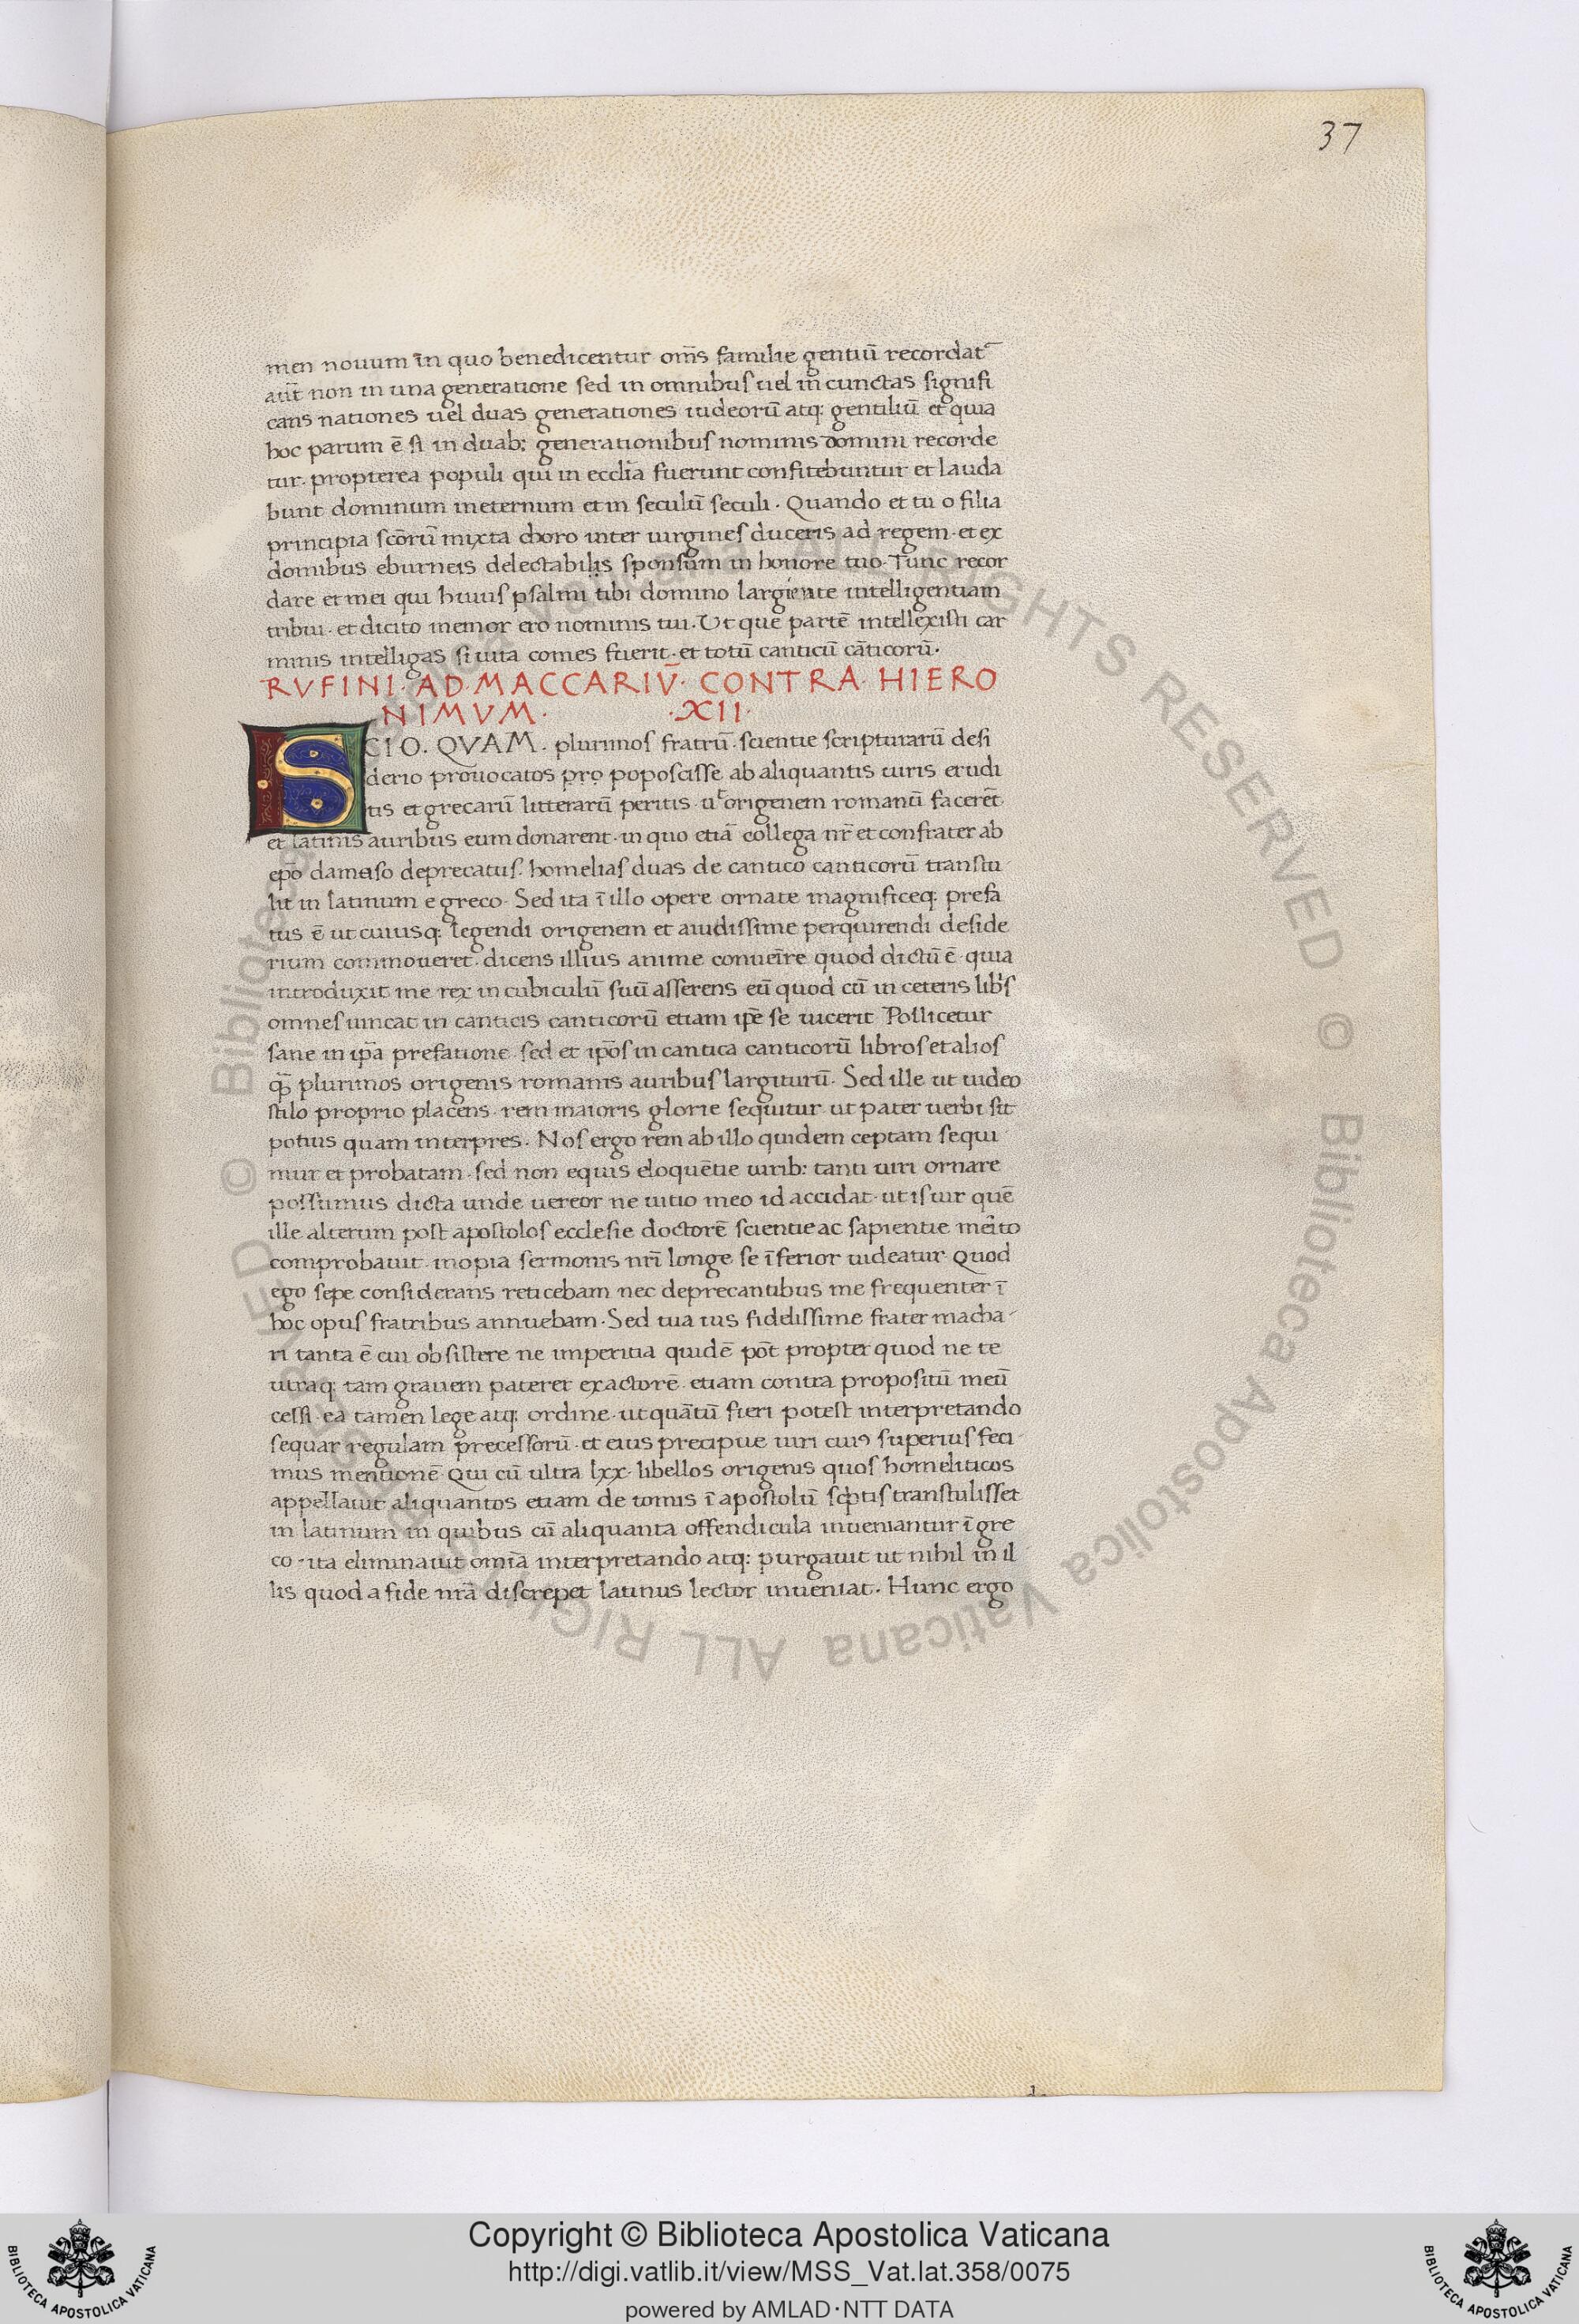 37
men nouum in quo benedicentur om̄s familie gentiū recordat̄
aūt non in una generatione sed in omnibus uel in cunctas signifi
cans nationes uel duas generationes iudeorū atq: gentiliū et quia
hoc parum ē si in duab: generationibus nominis domini recorde
tur. propterea populi qui in ecclīa fuerunt confitebuntur et lauda
bunt dominum in eternum et in seculū seculi. Quando et tu o filia
principia scōrū mixta choro inter uirgines duceris ad regem. et ex
domibus eburneis delectabilis sponsum in honore tuo. Tunc recor
dare et mei qui huius psalmi tibi domino largiente intelligentiam
tribui. et dicito memor ero nominis tui. Ut que partē intellexisti car
minis intelligas si uita comes fuerit. et totū canticū cāticorū.
RVFINI. AD. MACCARIV̄. CONTRA. HIERO
NIMVM. .XII.
SCIO. QVAM. plurimos fratrū. scientie scripturarū desi
derio prouocatos pro poposcisse ab aliquantis uiris erudi
tis et grecarū litterarū peritis. ut origenem romanū facerēt.
et latinis auribus eum donarent. in quo etiā collega nr̄ et confrater ab
epō damaso deprecatus. homelias duas de cantico canticorū transtu
lit in latinum e greco. Sed ita ī illo opere ornate magnificeq: prefa
tus ē ut cuiusq: legendi origenem et auidissime perquirendi deside
rium commoueret. dicens illius anime conueīre quod dictū ē. quia
introduxit me rex in cubiculū suū asserens eū quod cū in ceteris libris
omnes uincat in canticis canticorū etiam ipē se uicerit Pollicetur
sane in ipā prefatione. sed et ipōs in cantica canticorū libros et alios
q̄ plurimos origenis romanis auribus largiturū. Sed ille ut uideo
stilo proprio placens. rem maioris glorie sequitur. ut pater uerbi sit
potius quam interpres. Nos ergo rem ab illo quidem ceptam sequi
mur et probatam. sed non equis eloquētie uirib: tanti uiri ornare
possumus dicta unde uereor ne uitio meo id accidat. ut is uir quē
ille alterum post apostolos ecclesie doctorē scientie ac sapientie merito
comprobauit. inopia sermonis nrī longe se īferior uideatur. Quod
ego sepe considerans reticebam nec deprecantibus me frequenter ī
hoc opus fratribus annuebam. Sed tua uis fidelissime frater macha
ri tanta ē cui obsistere ne imperitia quidē pōt propter quod ne te
utraq: tam grauem paterer exactorē. etiam contra propositū meū
cessi. ea tamen lege atq: ordine. ut quātū fieri potest interpretando
sequar regulam precessorū. et eius precipue uiri cuiꝰ superius feci
mus mentionē. Qui cū ultra lxx. libellos origenis quos homeliticos
appellauit aliquantos etiam de tomis ī apostolū scptis transtulisset
in latinum in quibus cū aliquanta offendicula inueniantur ī gre
co. ita eliminauit omīa interpretando atq: purgauit ut nihil in il
lis quod a fide nrā discrepet latinus lector inueniat. Hunc ergo
© Biblioteca Apostolica Vaticana ALL RIGHTS RESERVED © Biblioteca Apostolica Vaticana ALL RIGHTS RESERVED
Copyright © Biblioteca Apostolica Vaticana
http://digi.vatlib.it/view/MSS_Vat.lat.358/0075
powered by AMLAD·NTT DATA
BIBLIOTECA APOSTOLICA VATICANA
BIBLIOTECA APOSTOLICA VATICANA